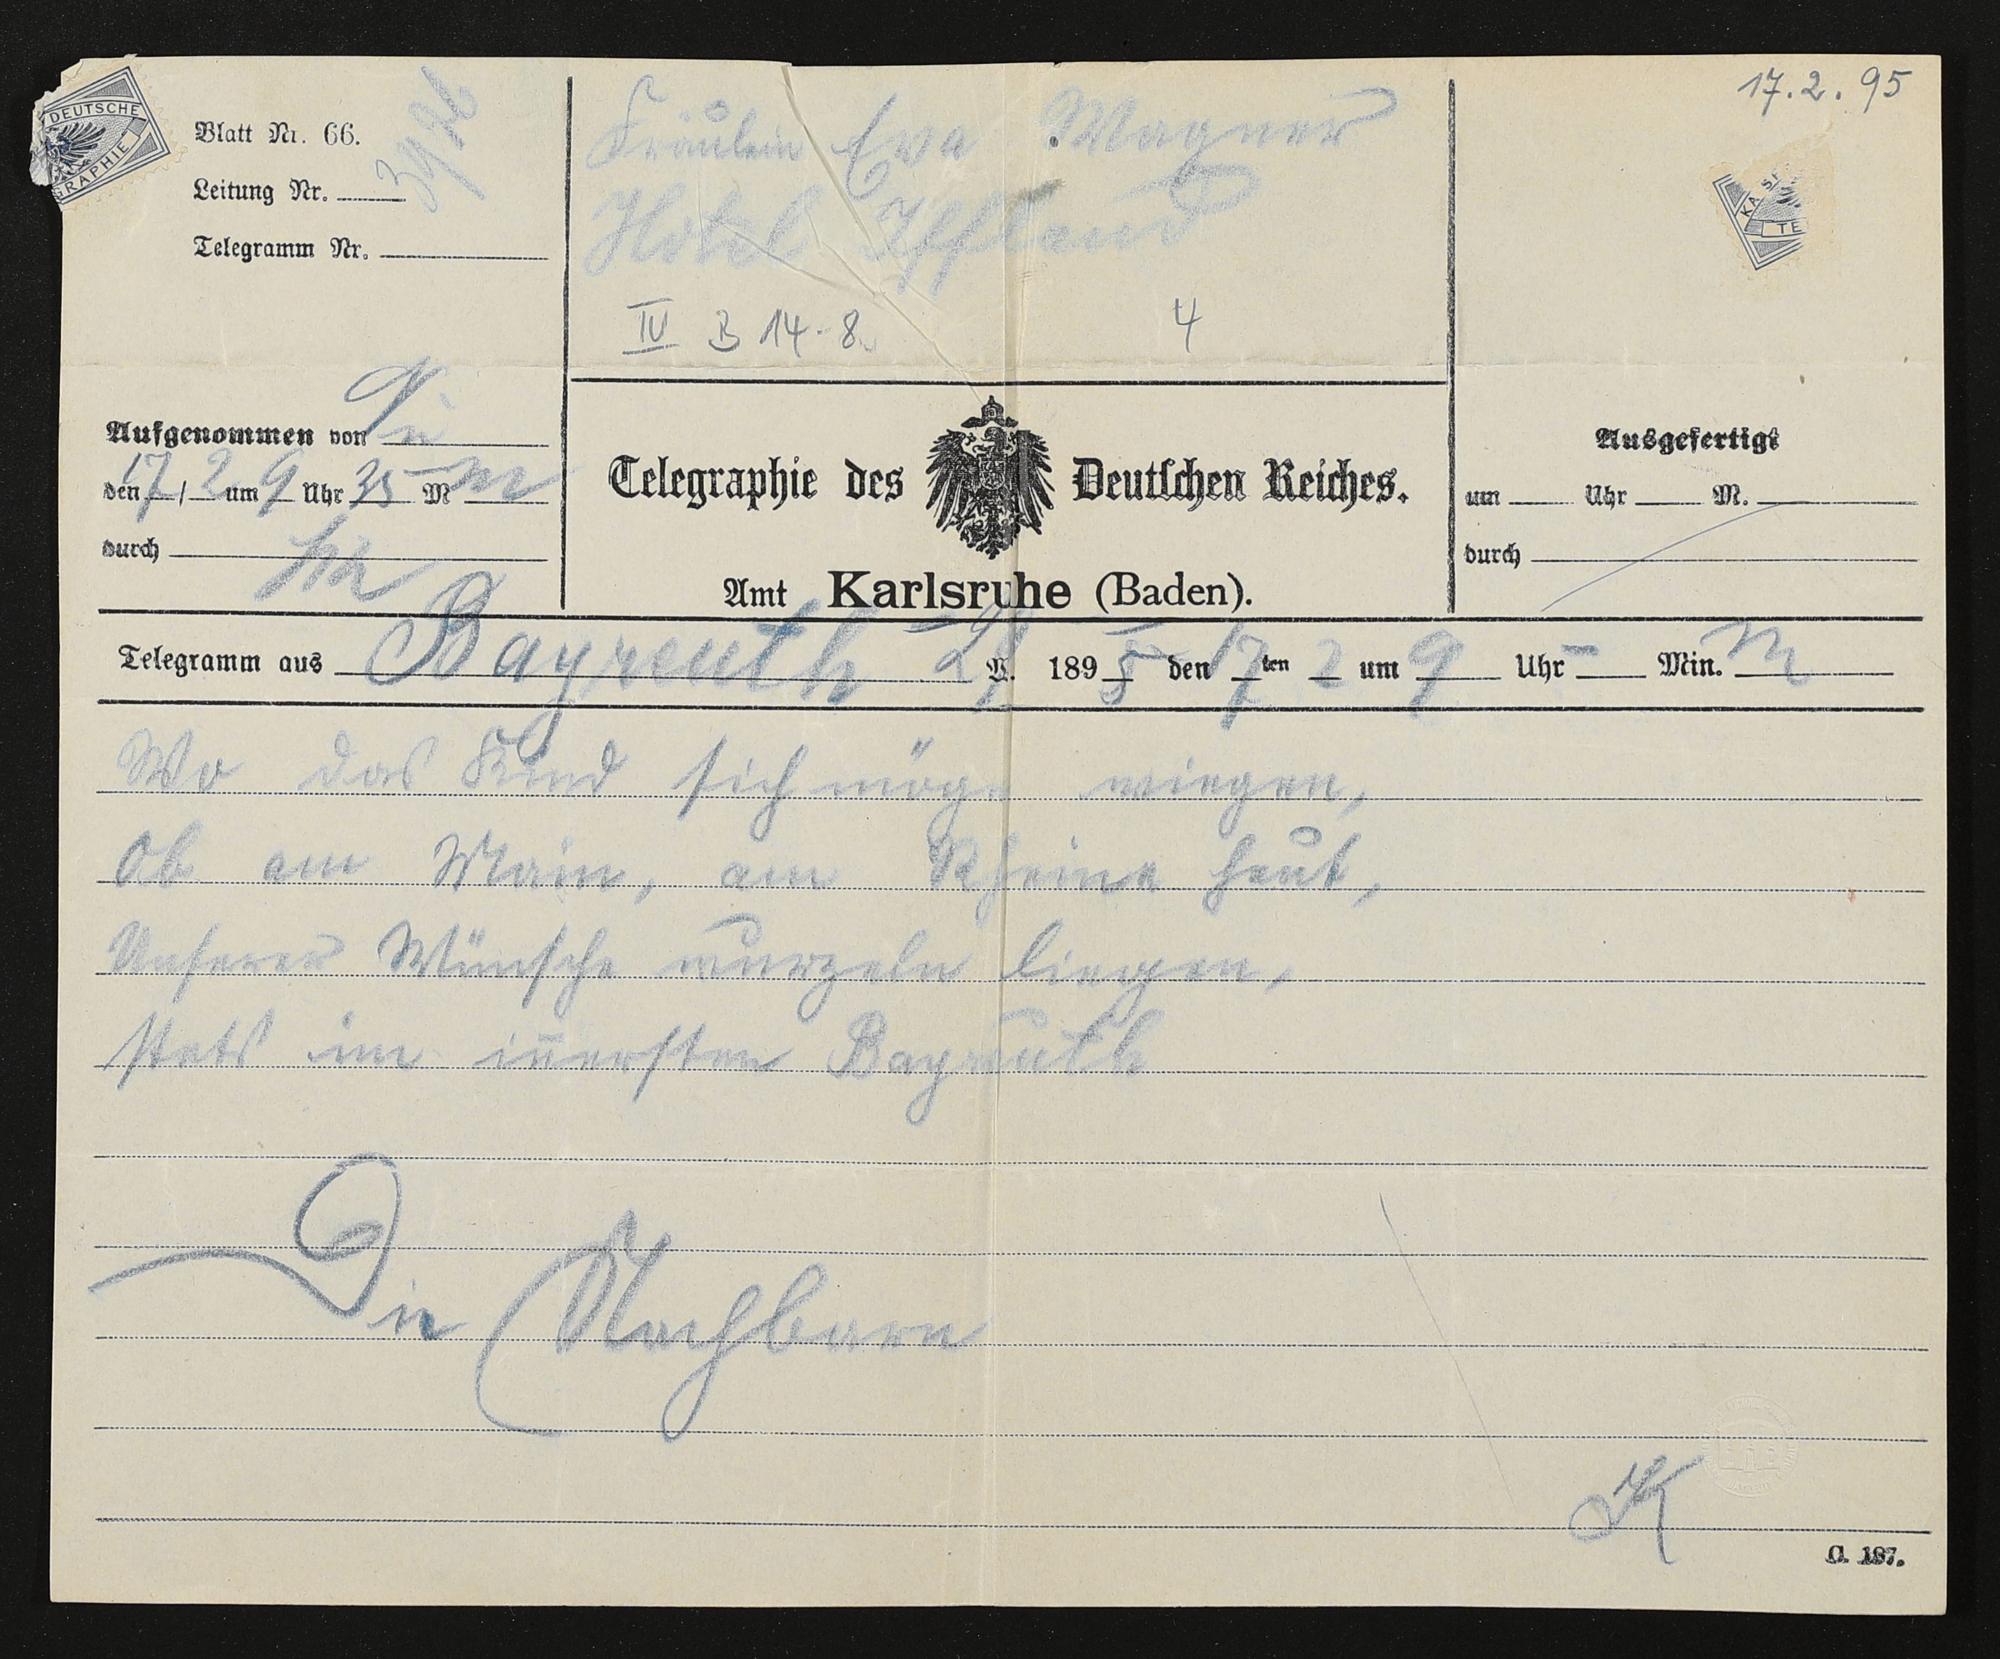 17.2.95
DEUTSCHE
GRAPHIE
Blatt Nr. 66.
Leitung Nr.
Telegramm Nr.
Fräulein Eva Wagner
Hotel Iffland
IV B 14-8.
4
KA
TE
Aufgenommen von
den 17/2 um 9 Uhr 35 M
durch
Telegraphie des Deutschen Reiches.
Amt Karlsruhe (Baden).
Ausgefertigt
um Uhr M.
durch
Telegramm aus Bayreuth W. 1895 den 17ten 2 um 9 Uhr - Min.
Wo das Kind sich möge wiegen,
Ob am Main, am Rheine heut,
Unserer Wünsche wurzeln liegen,
stets im iñersten Bayreuth
Die Nachbarn
K
C. 187.